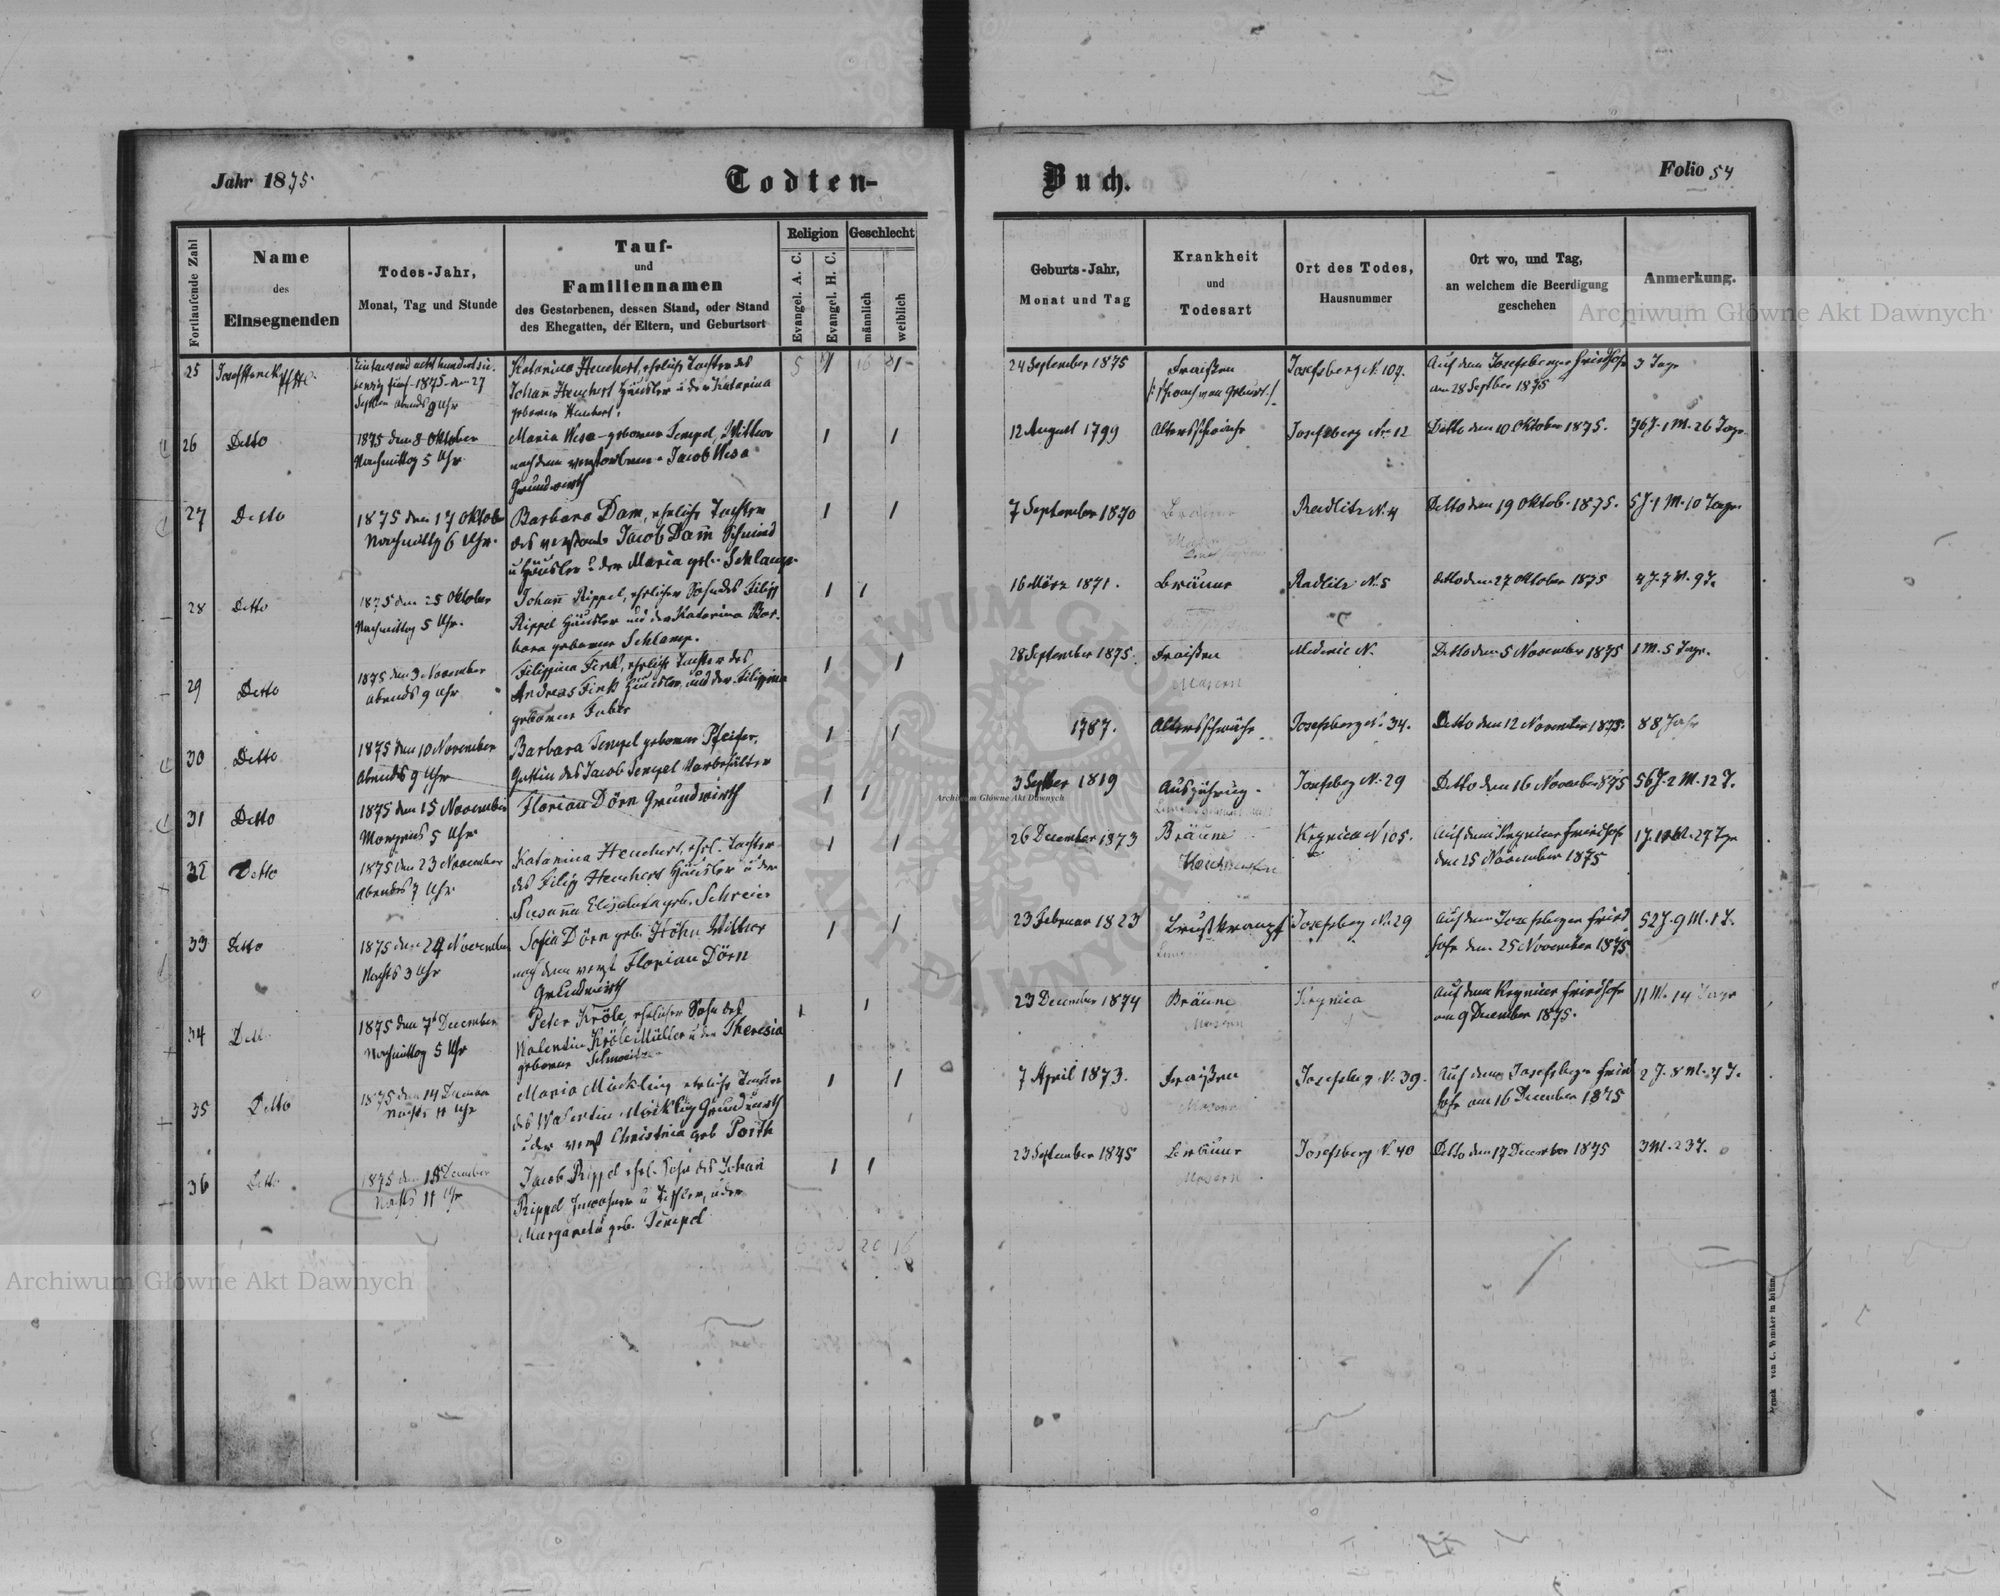 Jahr 1875.
Todten-
Buch.
Folio 54
Fortlaufende Zahl
Name
des
Einsegnenden
Todes-Jahr,
Monat, Tag und Stunde
Tauf-
und
Familiennamen
des Gestorbenen, dessen Stand, oder Stand
des Ehegatten, der Eltern, und Geburtsort
Religion
Evangel. A. C.
Evangel. H. C.
Geschlecht
männlich
weiblich
Geburts-Jahr,
Monat und Tag
Krankheit
und
Todesart
Ort des Todes,
Hausnummer
Ort wo, und Tag,
an welchem die Beerdigung
geschehen
Anmerkung.
25
Eintausend acht hundert sie-
benzig fünf 1875 den 27
Septber abends 9 Uhr
Katarina Heuchert, eheliche Tochter des
Johann Heuchert Häusler u der Katarina
geborene
24 September 1875
Fraißen
Josefsberg N. 107.
Auf dem Josefsberger Friedhofe
am 28 Septber 1875
3 Tage
26 Detto
1875 den 8 Oktober
Nachmittag 5 Uhr
Maria Wesa geborene Tempel, Wittwe
nach dem verstorbenen Jacob Wesa
Grundwirth
12 August 1799
Altersschwäche
Josefsberg Nr. 12
Detto den 10 Oktober 1875.
76 J. 1 M. 26 Tage
27 Detto
1875 den 17 Oktober
Nachmittg 6 Uhr.
Barbara Dam, eheliche Tochter
des verstorb. Jacob Dam Schmied
u Häusler u der Maria geb. Schlamp.
7 September 1870
Radlitz N. 4
Detto den 19 Oktob. 1875.
5 J. 1 M. 10 Tage
28 Detto
1875 den 25 Oktober
Nachmittag 5 Uhr.
Johann Rippel, ehelicher Sohn des Filipp
Rippel Häusler und der Katarina Bar-
bara geborene Schlamp.
16 März 1871.
Bräune
Radlitz N. 5
detto den 27 Oktober 1875
4 J. 7 M. 9 T.
29 Detto
1875 den 3 November
abends 9 Uhr
Filippina Fink, eheliche Tochter des
Andreas Fink Häusler und der Filippina
geborene Faber
28 September 1875.
Fraißen
Masern
Medenic N.
Detto den 5 November 1875
1 M. 5 Tage.
30 Detto
1875 den 10 November
Abends 9 Uhr
Barbara Tempel geborene Pfeifer,
Gattin des Jacob Tempel Vorbehälter
1787.
Altersschwäche
Josefsberg N. 34.
Detto den 12 November 1875.
88 Jahr
31 Detto
1875 den 15 November
Morgens 5 Uhr
Florian Dörn Grundwirth
3 Septber 1819
Auszehrung
Josefsberg N. 29
Detto den 16 November 1875
56 J. 2 M. 12 T.
32 Detto
1875 den 23 November
abends 7 Uhr
Katarina Heuchert, ehel. Tochter
des Filip Heuchert Häusler u der
Susanna Elisabeta geb. Schreier
26 December 1873
Bräune
Krynica N 105.
Auf dem Krynicer Friedhofe
den 25 November 1875
33 Detto
1875 den 24 November
Nachts 3 Uhr
Sofia Dörn geb. Höhn Wittwe
nach dem verst Florian Dörn
Grundwirth
23 Februar 1823
Brustkrampf
Josefsberg N. 29
Auf dem Josefsberger Fried
hofe den 25 November 1875
52 J. 9 M. 1 T.
34
1875 den 7 December
Nachmittag 5 Uhr
Peter Kröle, ehelicher Sohn des
Valentin Kröle Müller u der Theresia
geborene
23 December 1874
Bräune
Masern
Krynica
Auf dem Krynicer Friedhofe
am 9 December 1875.
11 M. 14 Tage
35 Detto
1875 den 14 December
Nachts 11 Uhr
Maria Mückling eheliche Tochter
des Valentin Mückling Grundwirth
u der verst Christina geb Porth
7 April 1873.
Fraißen
Masern
Josefsberg N. 39.
Auf dem Josefsberger Fried
hofe am 16 December 1875
2 J. 8 M. 7 T.
36 Detto
1875 den 15 December
Nachts 11 Uhr
Jacob Rippel ehel. Sohn des Johan
Rippel Inwohner u Tischler, u der
Margareta geb. Tempel
23 September 1875
Bräune
Masern
Josefsberg N. 40
Detto den 17 December 1875
3 M. 23 T.
Archiwum Główne Akt Dawnych
Archiwum Główne Akt Dawnych
Archiwum Główne Akt Dawnych
ARCHIWUM GŁÓWNE AKT DAWNYCH